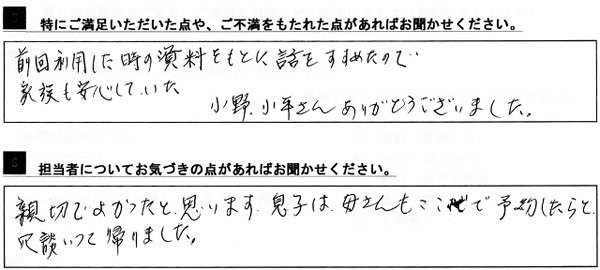 特にご満足いただいた点や、ご不満をもたれた点があればお聞かせください。
前回利用した時の資料をもとに話をすすめたので
家族も安心していた
小野、小平さんありがとうございました。
担当者についてお気づきの点があればお聞かせください。
親切でよかったと思います。息子は、母さんもここで予約したらと
冗談いって帰りました。